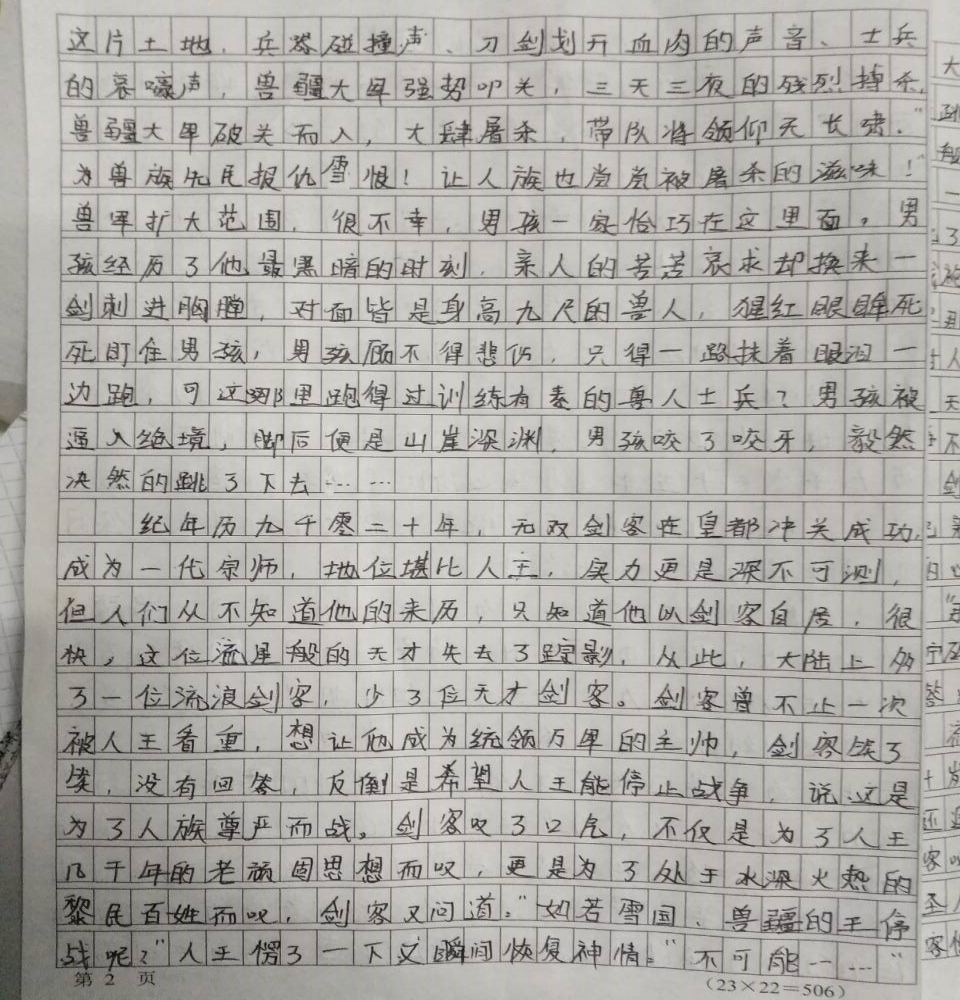 这片土地，兵器碰撞声、刀剑划开血肉的声音、士兵
的哀嚎声，兽疆大军强势叩关，三天三夜的残烈搏杀，
兽疆大军破关而入，大肆屠杀，带队将领仰天长啸："
为兽族先民报仇雪恨！让人族也尝尝被屠杀的滋味！
兽军扩大范围，很不幸，男孩一家恰巧在这里面，男
孩经历了他最黑暗的时刻，亲人的苦苦哀求却换来一
剑刺进胸膛，对面皆是身高九尺的兽人，猩红眼眸死
死盯住男孩，男孩顾不得悲伤，只得一路抹着眼泪一
边跑，可这哪里跑得过训练有素的兽人士兵？男孩被
逼入绝境，脚后便是山崖深渊，男孩咬了咬牙，毅然
决然的跳了下去……
纪年历九千零二十年，无双剑客在皇都冲关成功，
成为一代宗师，地位堪比人主，实力更是深不可测，
但人们从不知道他的来历，只知道他以剑客自居，很
快，这位流星般的天才失去了踪影，从此，大陆上多
了一位流浪剑客，少了位天才剑客。剑客曾不止一次
被人王看重，想让他成为统领万军的主帅，剑客笑了
笑，没有回答，反倒是希望人王能停止战争，说这是
为了人族尊严而战。剑客叹了口气，不仅是为了人王
几千年的老顽固思想而叹，更是为了处于水深火热的
黎民百姓而叹，剑客又问道："如若雪国、兽疆的王停
战呢？"人王愣了一下又瞬间恢复神情。"不可能……"
第 2 页
(23×22=506)